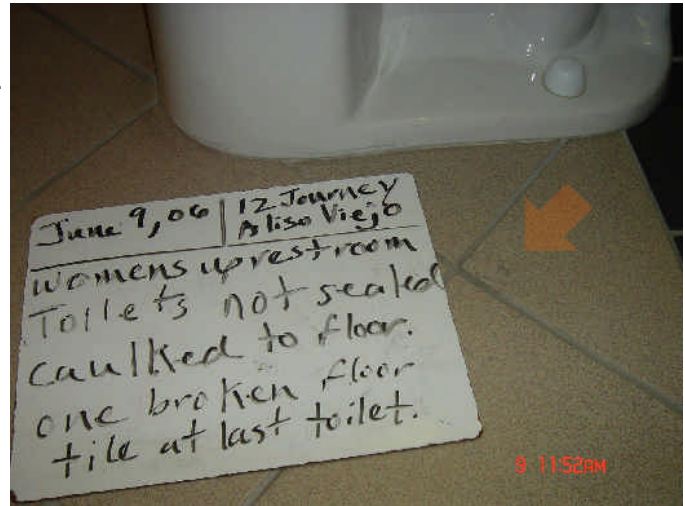 June 9, 06 | 12 Journey
Aliso Viejo
womens up restroom
Toilets not sealed
caulked to floor.
one broken floor
tile at last toilet.
9 11:52AM